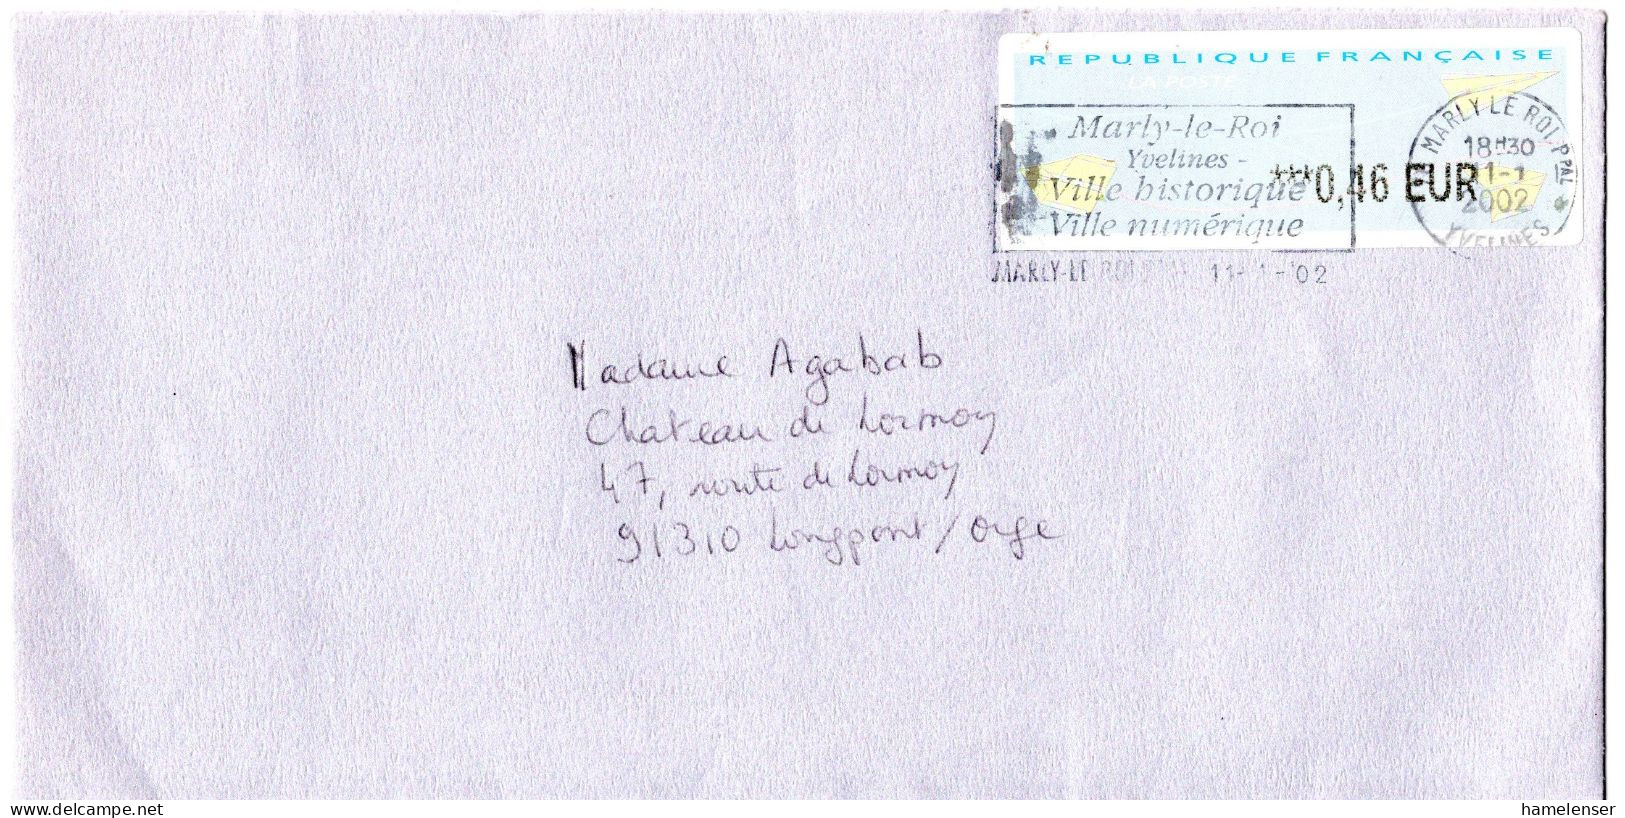 REPUBLIQUE FRANÇAISE
LA POSTE
Marly-le-Roi
Yvelines -
Ville historique
Ville numérique
***0,46 EUR
MARLY LE ROI PPAL
18H30
11-1
2002
YVELINES
MARLY-LE ROI 11-1-'02
Madame Agabab
Chateau de Lormoy
47, route de Lormoy
91310 Longpont/Orge
delcampe.net
hamelenser